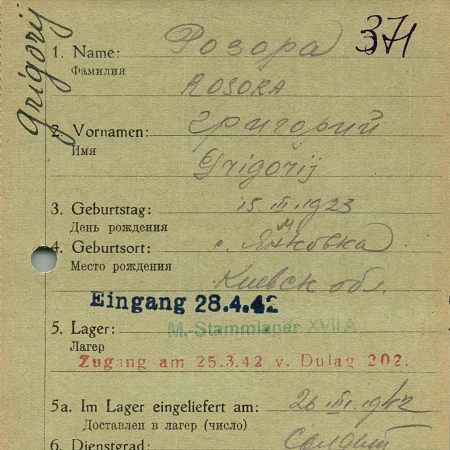 Grigorij
371
1. Name: Розора
Фамилия
ROSORA
2. Vornamen: Григорий
Имя
Grigorij
3. Geburtstag: 15.III.1923
День рождения
4. Geburtsort: с. Янковка
Место рождения
Киевск обл.
Eingang 28.4.42
5. Lager: M.-Stammlager XVII A
Лагер
Zugang am 25.3.42 v. Dulag 202.
5a. Im Lager eingeliefert am: 26 III. 1942
Доставлен в лагер (число)
6. Dienstgrad: Солдат